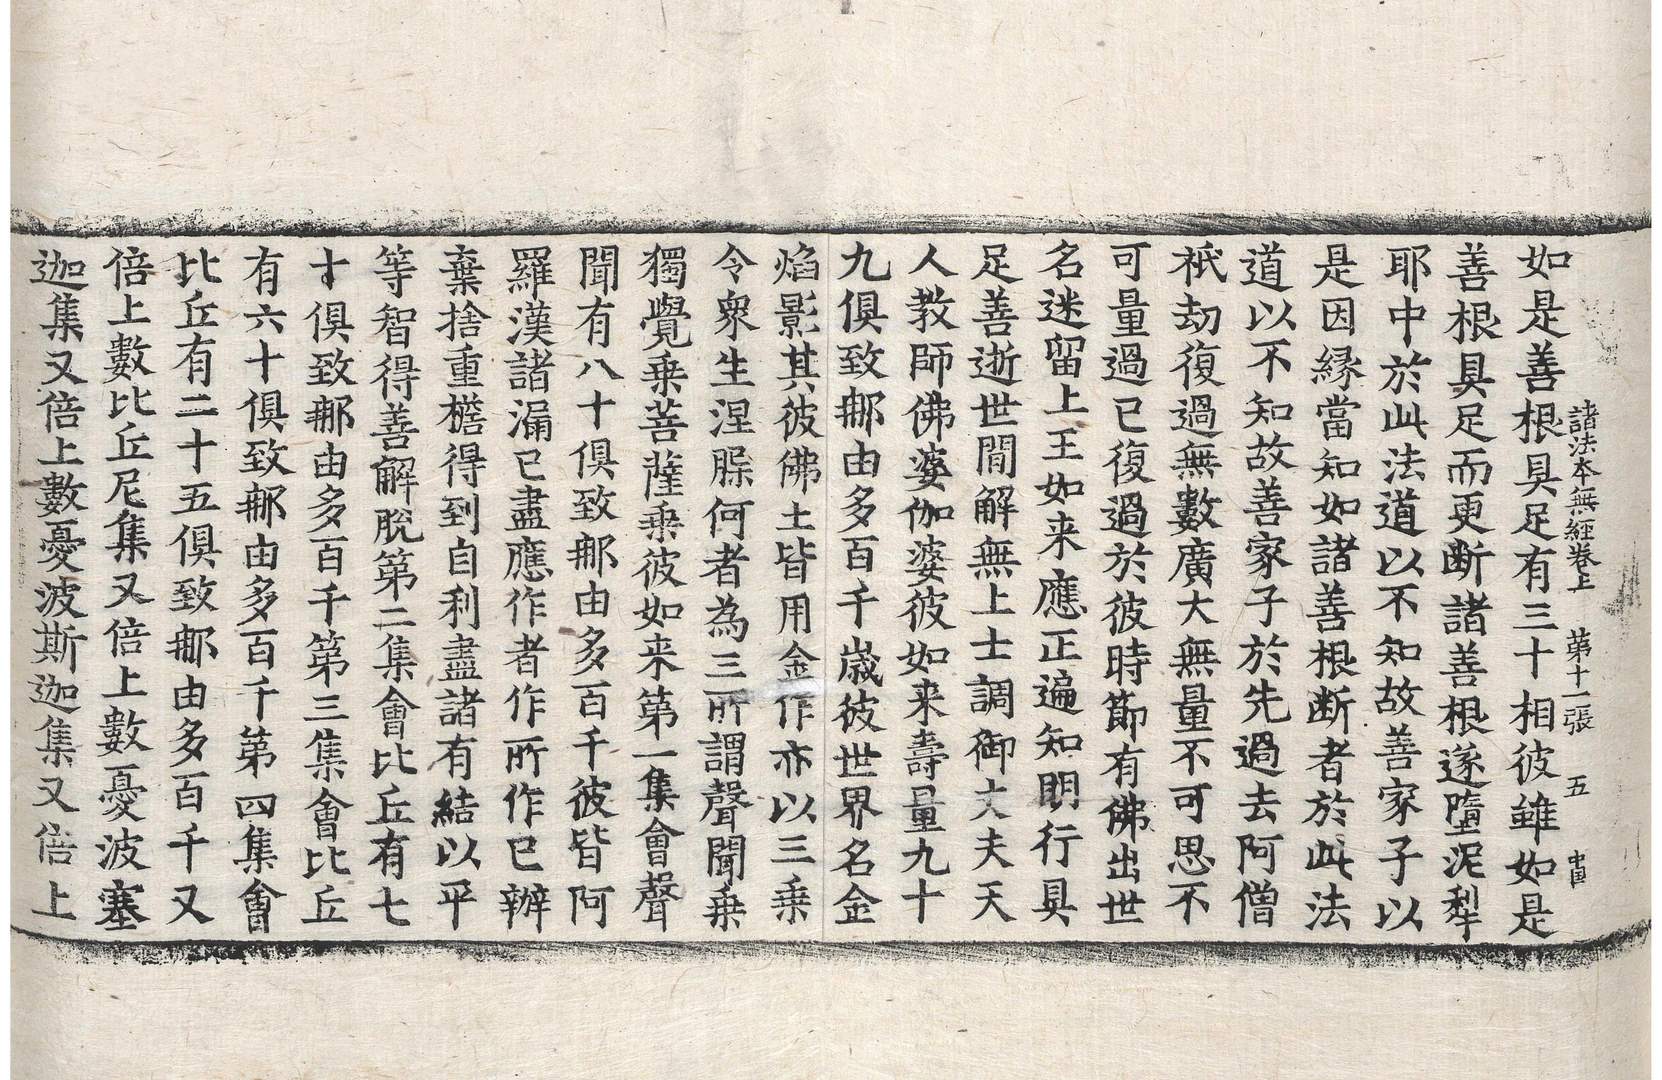 諸法本無經卷上 第十一張 五
如是善根具足有三十相彼雖如是
善根具足而更断諸善根遂墮泥犁
耶中於此法道以不知故善家子以
是因縁當知如諸善根断者於此法
道以不知故善家子於先過去阿僧
祇劫復過無數廣大無量不可思不
可量過已復過於彼時節有佛出世
名迷留上王如来應正遍知明行具
足善逝世間解無上士調御大夫天
人教師佛婆伽婆彼如来壽量九十
九俱致那由多百千歳彼世界名金
焰影其彼佛土皆用金作亦以三乗
令衆生涅槃何者為三所謂聲聞乗
獨覺乗菩薩乗彼如来第一集會聲
聞有八十俱致那由多百千彼皆阿
羅漢諸漏已盡應作者作所作已辦
棄捨重檐得到自利盡諸有結以平
等智得善解脫第二集會比丘有七
十俱致那由多百千第三集會比丘
有六十俱致那由多百千第四集會
比丘有二十五俱致那由多百千又
倍上數比丘尼集又倍上數憂波塞
迦集又倍上數憂波斯迦集又倍上